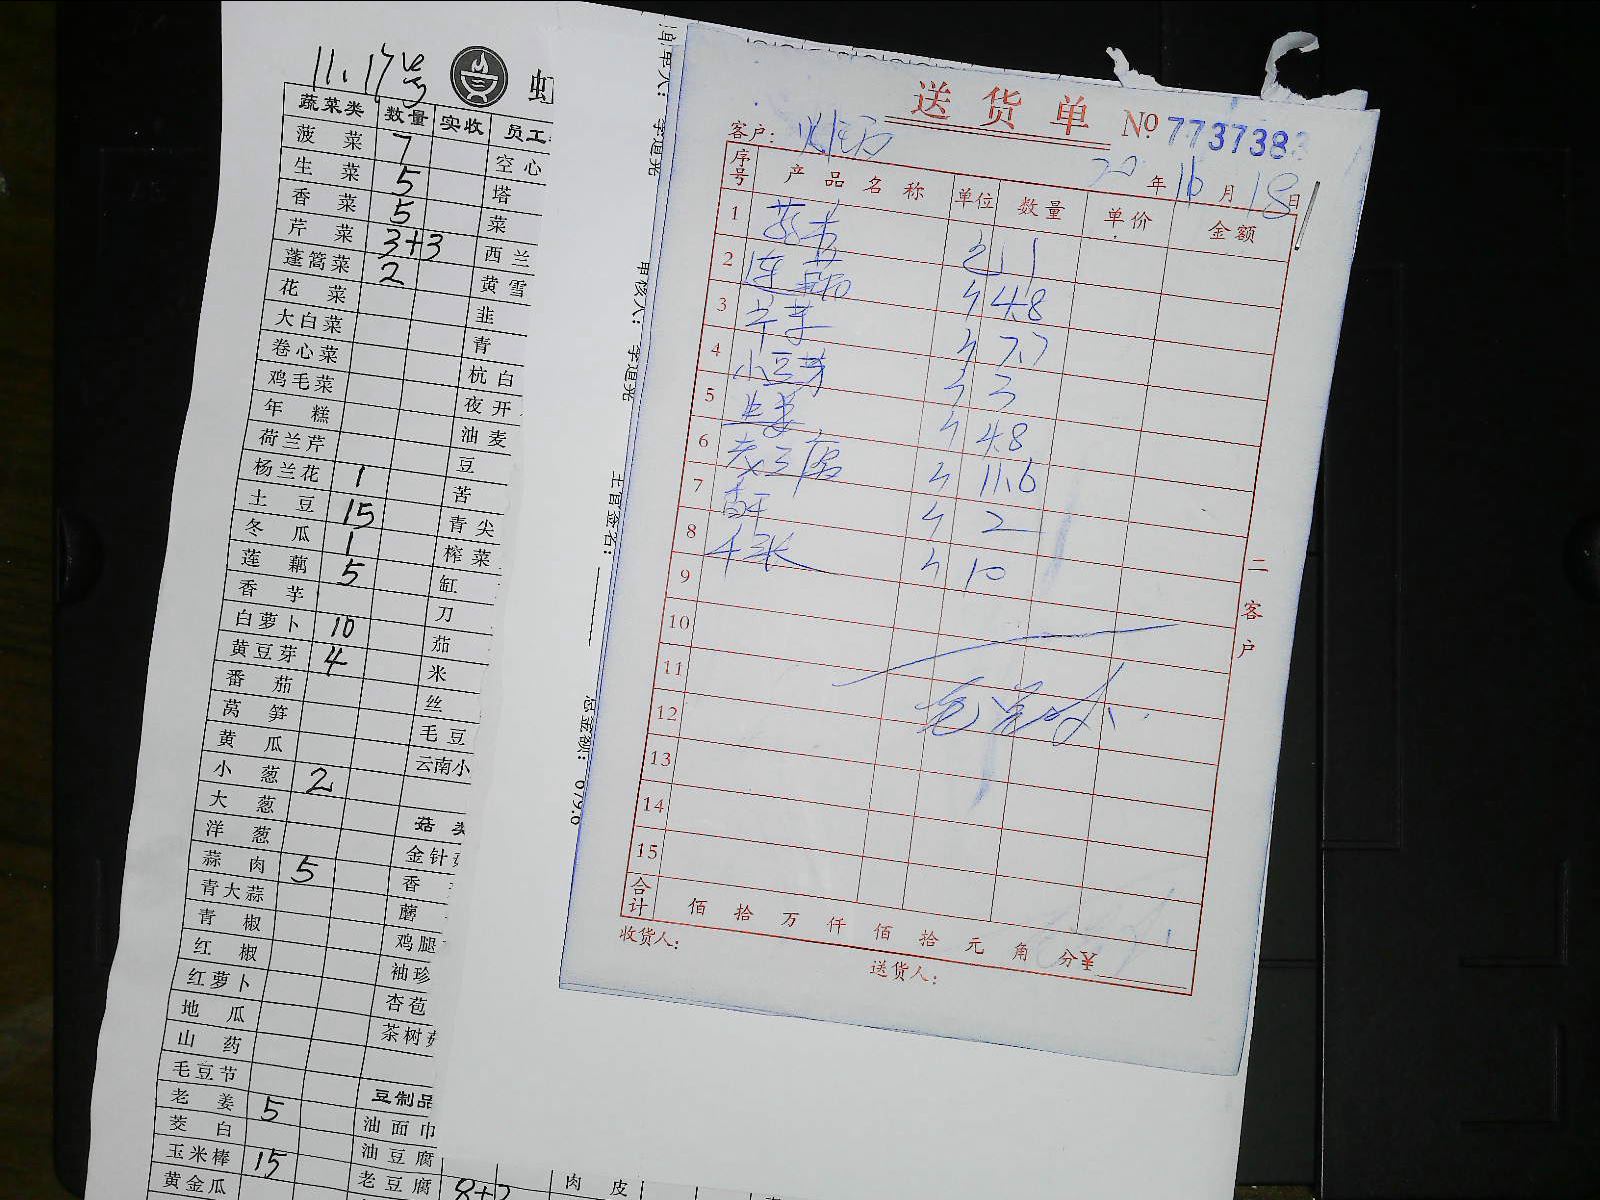 11.17号
虹
蔬菜类 数量 实收 员工
菠菜 7 空心
生菜 5 塔
香菜 5 菜
芹菜 3+3 西兰
蓬蒿菜 2 黄雪
花菜 韭
大白菜 青
卷心菜 杭白
鸡毛菜 夜开
年糕 油麦
荷兰芹 豆
杨兰花 1 苦
土豆 15 青尖
冬瓜 1 榨菜
莲藕 5 缸
香芋 刀
白萝卜 10 茄
黄豆芽 4 米
番茄 丝
莴笋 毛豆
黄瓜 云南小
小葱 2
大葱 菇类
洋葱 金针
蒜肉 5 香
青大蒜 蘑
青椒 鸡腿
红椒 袖珍
红萝卜 杏苞
地瓜 茶树
山药
毛豆节 豆制品
老姜 5 油面巾
茭白 油豆腐
玉米棒 15 老豆腐 8+2 肉皮
黄金瓜
审核人:
主官签名:
总金额: 679.6
送货单 № 7737383
客户:
20年10月18日
序号 产品名称 单位 数量 单价 金额
1 1
2 4.8
3 芹菜 7.7
4 小豆芽 3
5 生姜 4.8
6 老豆腐 11.6
7 2
8 千张 10
9
10
11
12
13
14
15
合计 佰拾万仟佰拾元角分¥
收货人: 送货人:
二客户